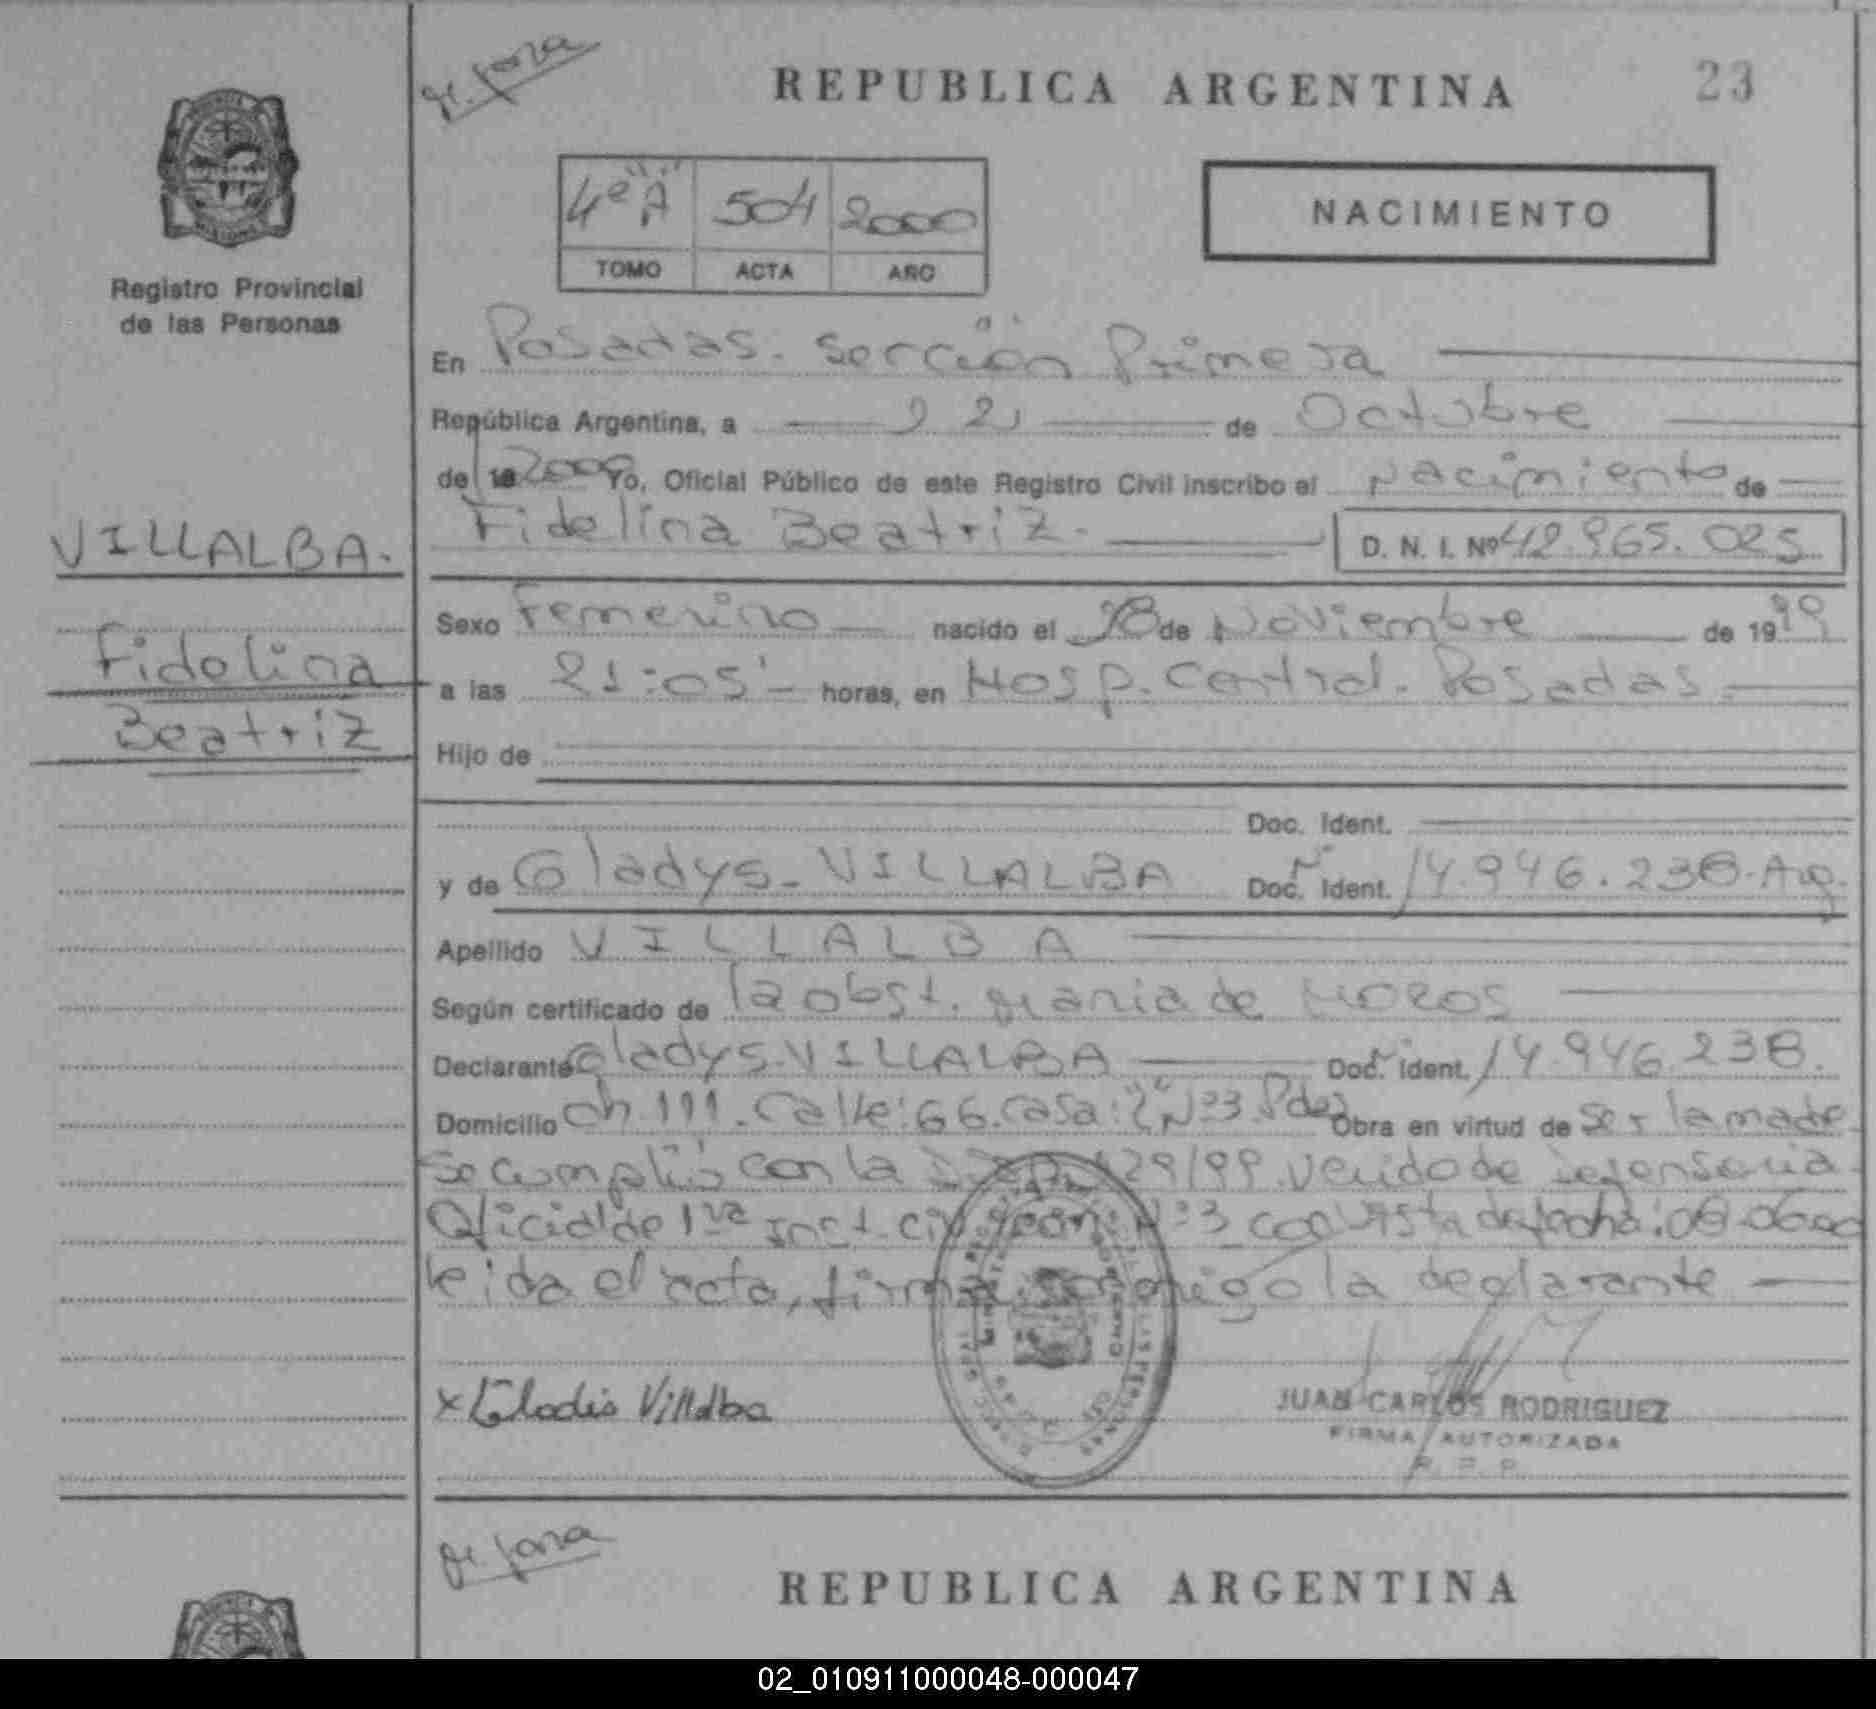 de fora
REPUBLICA ARGENTINA
23
4º "A" 504 2000
TOMO ACTA AÑO
NACIMIENTO
Registro Provincial
de las Personas
En Posadas. Sección Primera
República Argentina, a 12 de Octubre
de 2000 Yo, Oficial Público de este Registro Civil inscribo el Nacimiento de
Fidelina Beatriz. D. N. I. Nº 42.965.025
VILLALBA.
Fidelina
Beatriz
Sexo Femenino nacido el 28 de Noviembre de 1999
a las 21:05' horas, en Hosp. Central. Posadas.
Hijo de
Doc. Ident.
y de Gladys VILLALBA Doc. Ident. Nº 14.946.238. Arg.
Apellido VILLALBA
Según certificado de la obst. María de
Declarante Gladys VILLALBA Doc. Ident. Nº 14.946.238.
Domicilio Ch. 111. Calle: 66. casa: Nº 3. Pdas Obra en virtud de ser la madre
se cumplió con la 129/99 venido de Defensoria
Oficial de 1ra Inst. Civ. Nº 3 con vista de fecha: 08-06-00
leida el acta, firma conmigo la declarante
x Gladis Villalba
JUAN CARLOS RODRIGUEZ
FIRMA AUTORIZADA
R. P. P.
de fora
REPUBLICA ARGENTINA
02_010911000048-000047